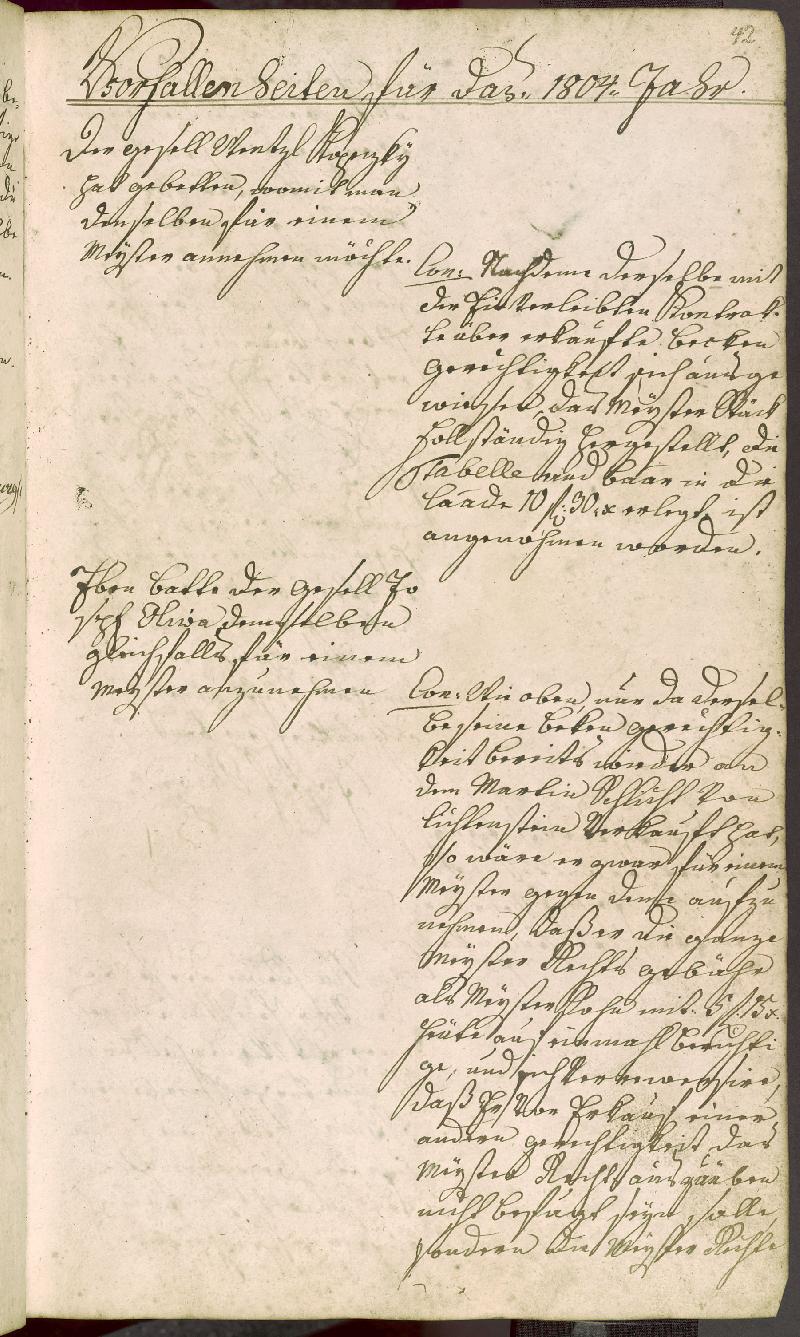 42
Vorfallenheiten für das 1804. Jahr.
Der gesell Wentzl Kopezky
hat gebetten, womit man
denselben für einem
Meyster annehmen möchte.
Con: Nachdeme derselbe mit
der Einverleibten Kontrak-
te über erkaufte becken
gerechtigkeit sich ausge
wiesen, das Meyster Stück
vollständig hergestellt, die
Tabelle und baar in die
Laade 10 f: 30 x erlegt, ist
angenohmen worden.
Eben batte der gesell Jo
seph Sliwa demselben
gleichfalls für einem
Meyster anzunehmen
Con: Wie oben, nur da dersel-
be seine beken gerechtig-
keit bereits wieder an
dem Martin Schlicht von
Lichtenstein verkauft hat,
so wäre er zwar für einem
Meyster gegen deme aufzu
nehmen, daß er die ganze
Meyster Rechts gebühr
als Meyster Sohn mit 5 f: 15 x
heute auf einmahl berichti
ge, und sich reversire,
daß Er vor Erkauf einer
andern gerechtigkeit das
Meyster Recht auszuüben
nicht befugt seyn solle,
sondern die Meyster Rechte